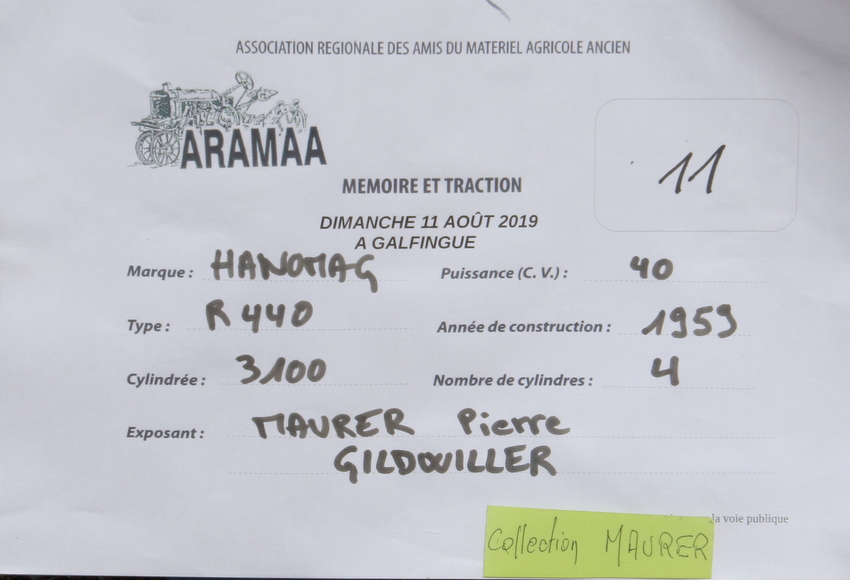 ASSOCIATION REGIONALE DES AMIS DU MATERIEL AGRICOLE ANCIEN
ARAMAA
11
MEMOIRE ET TRACTION
DIMANCHE 11 AOÛT 2019
A GALFINGUE
Marque : HANOMAG Puissance (C. V.) : 40
Type : R 440 Année de construction : 1959
Cylindrée : 3100 Nombre de cylindres : 4
Exposant : MAURER Pierre
GILDWILLER
la voie publique
Collection MAURER